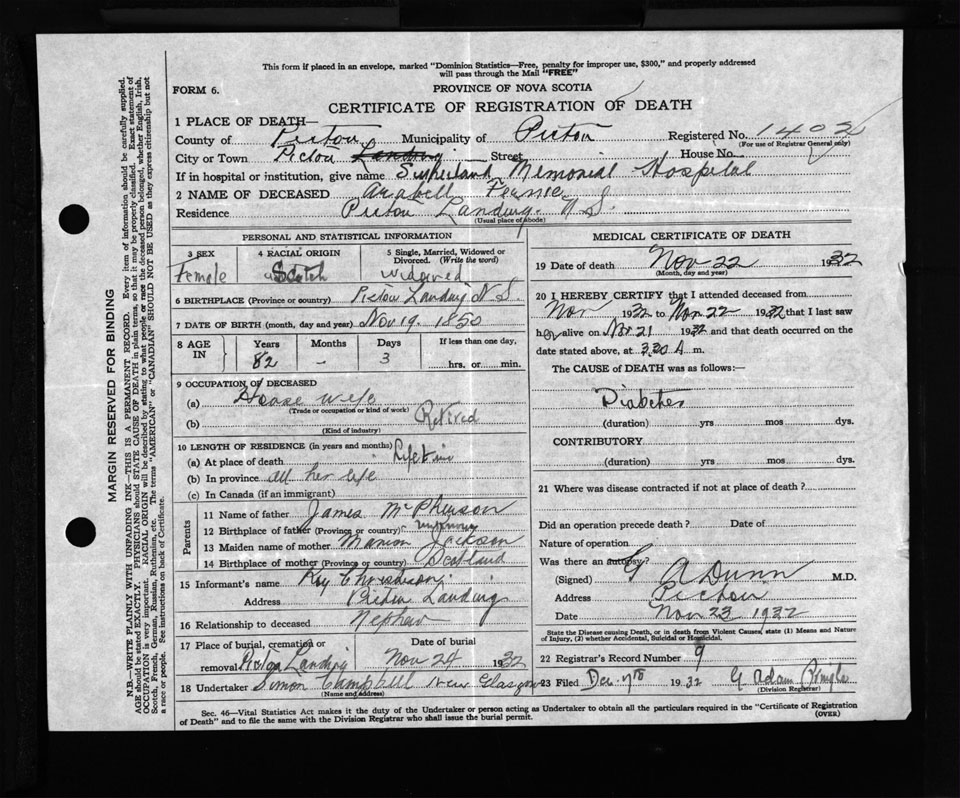 This form if placed in an envelope, marked "Dominion Statistics—Free, penalty for improper use, $300," and properly addressed
will pass through the Mail "FREE"
FORM 6.
PROVINCE OF NOVA SCOTIA
CERTIFICATE OF REGISTRATION OF DEATH
1 PLACE OF DEATH—
County of Pictou Municipality of Pictou Registered No. 1402
(For use of Registrar General only)
City or Town Pictou Landing Street House No.
If in hospital or institution, give name Sutherland Memorial Hospital
2 NAME OF DECEASED Arabell Fernie
Residence Pictou Landing. N.S.
(Usual place of abode)
PERSONAL AND STATISTICAL INFORMATION
3 SEX
Female
4 RACIAL ORIGIN
Scotch
5 Single, Married, Widowed or Divorced. (Write the word)
Widowed
6 BIRTHPLACE (Province or country) Pictou Landing N.S.
7 DATE OF BIRTH (month, day and year) Nov 19. 1850
8 AGE IN Years Months Days If less than one day,
82 - 3 hrs. or min.
9 OCCUPATION OF DECEASED
(a) House wife
(Trade or occupation or kind of work)
(b) Retired
(Kind of industry)
10 LENGTH OF RESIDENCE (in years and months)
(a) At place of death Life time
(b) In province all her life
(c) In Canada (if an immigrant)
Parents
11 Name of father James McPherson
12 Birthplace of father (Province or country) unknown
13 Maiden name of mother Marion Jackson
14 Birthplace of mother (Province or country) Scotland
15 Informant's name Roy Christison
Address Pictou Landing
16 Relationship to deceased Nephew
17 Place of burial, cremation or removal Landing
Date of burial
Nov 24 1932
18 Undertaker Simon Campbell New Glasgow
(Name and address)
MEDICAL CERTIFICATE OF DEATH
19 Date of death Nov 22 1932
(Month, day and year)
20 I HEREBY CERTIFY that I attended deceased from
Nov 1932 to Nov 22 1932 that I last saw
her alive on Nov 21 1932 and that death occurred on the
date stated above, at 3.30 A m.
The CAUSE of DEATH was as follows:—
Diabetes
(duration) yrs mos dys.
CONTRIBUTORY
(duration) yrs mos dys.
21 Where was disease contracted if not at place of death?
Did an operation precede death? Date of
Nature of operation
Was there an autopsy?
(Signed) A Dunn M.D.
Address Pictou
Date Nov 23 1932
State the Disease causing Death, or in death from Violent Causes, state (1) Means and Nature of Injury, (2) whether Accidental, Suicidal or Homicidal.
22 Registrar's Record Number 9
23 Filed Dec. 1932 G Adam
(Division Registrar)
Sec. 46—Vital Statistics Act makes it the duty of the Undertaker or person acting as Undertaker to obtain all the particulars required in the "Certificate of Registration
of Death" and to file the same with the Division Registrar who shall issue the burial permit.
(OVER)
MARGIN RESERVED FOR BINDING
N.B.—WRITE PLAINLY WITH UNFADING INK—THIS IS A PERMANENT RECORD. Every item of information should be carefully supplied.
AGE should be stated EXACTLY. PHYSICIANS should STATE CAUSE OF DEATH in plain terms, so that it may be properly classified. Exact statement of
OCCUPATION is very important. RACIAL ORIGIN will be described by stating to what people or race the deceased person belonged, whether English, Irish,
Scotch, French, German, Russian, Ruthenian, etc. The terms "AMERICAN" or "CANADIAN" SHOULD NOT BE USED as they express citizenship but not
a race or people. See instructions on back of Certificate.